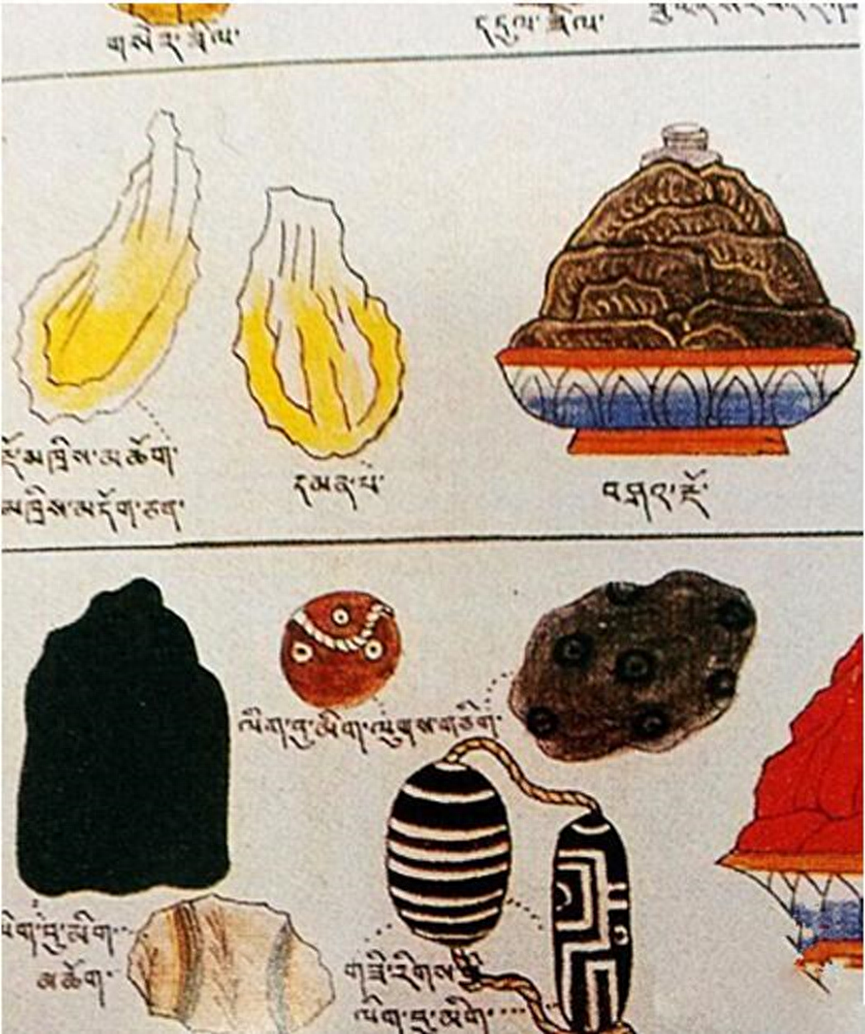 གསེར་ཟིལ་
དངུལ་ཟིལ་
རྡོ་མཁྲིས་མཆོག་
མཁྲིས་མདོག་ཅན་
དམན་པ་
བཤའ་རྡོ་
ལིག་བུ་མིག་ལུགས་གཅིག་
ལིག་བུ་མིག་
མཆོག་
གཟི་རིགས་ཀྱི་
ལིག་བུ་མིག་